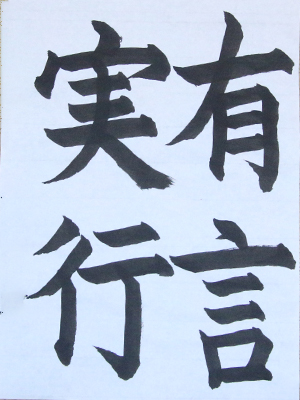 有言
実行